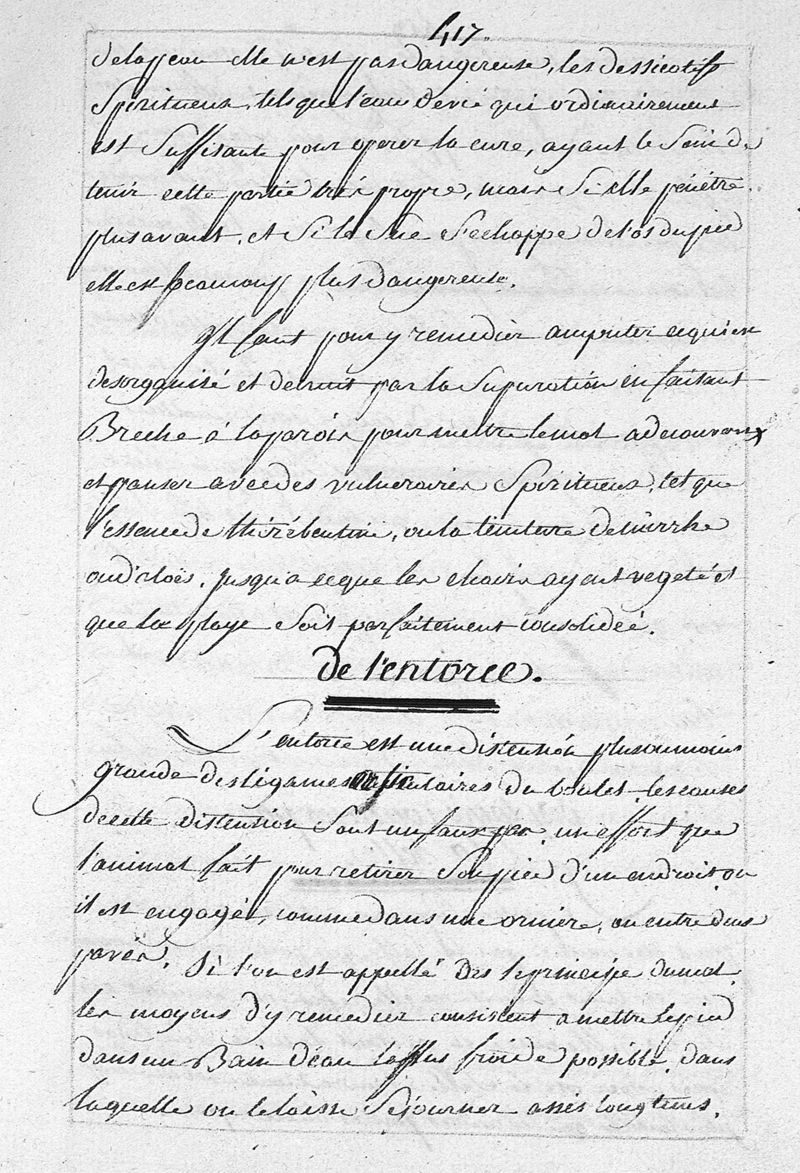 417.
de la peau elle n'est pas dangereuse, les dessicatifs
Spiritueux, tels que l'eau de vie qui ordinairement
est Suffisante pour operer la cure, ayant le Soin de
tenir cette partie très propre, mais Si elle pénétre
plus avant, et Si le Sue S'echappe de l'os du pied
elle est beaucoup plus dangereuse.
Il faut pour y remedier amputer ce qui est
desorganisé et detruit par la Supuration en faisant
Breche à la parois pour mettre le mal a decouvert
et panser avec des vulneraires Spiritueux, tel que
l'essence de thérébentine, ou la teinture de mirrhe
ou d'aloës, jusqu'a ce que les chairs ayent vegeté et
que la playe Soit parfaitement consolideé.
De l'entorce.
L'entorce est une distension plus ou moins
grande des ligamens du boulet. les causes
de cette distension Sont un faux pas, un effort que
l'animal fait pour retirer Son pied d'un endroit ou
il est engagé, comme dans une orniere, ou entre deux
pavés. Si l'on est appellé Dès le principe du mal,
les moyens d'y remedier consistent a mettre le pied
dans un Bain d'eau la plus froide possible, dans
laquelle on le laisse Sejourner assés longtems.